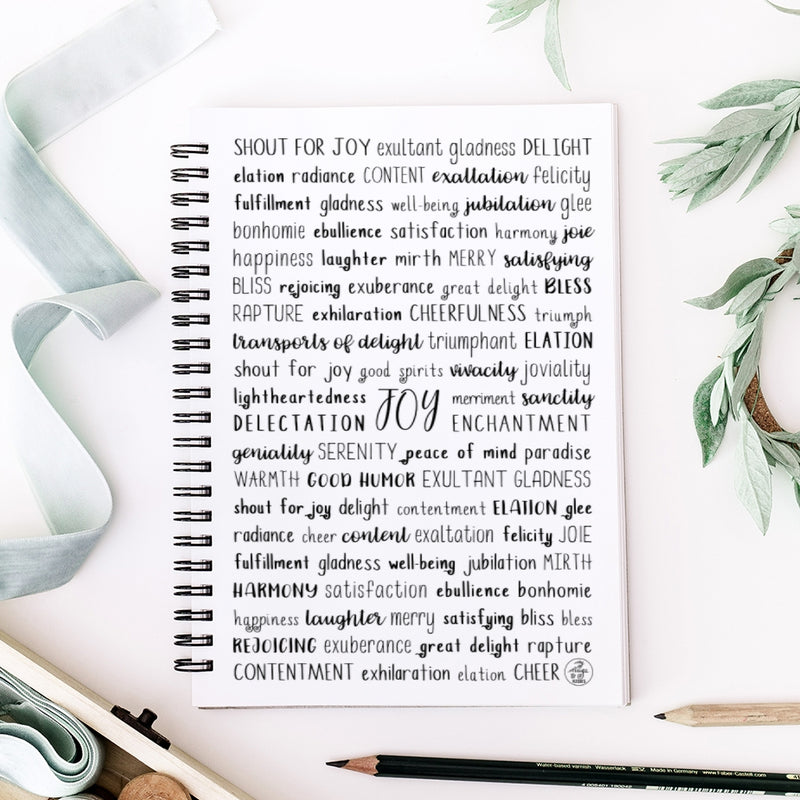 SHOUT FOR JOY exultant gladness DELIGHT
elation radiance CONTENT exaltation felicity
fulfillment gladness well-being jubilation glee
bonhomie ebullience satisfaction harmony joie
happiness laughter mirth MERRY satisfying
BLISS rejoicing exuberance great delight BLESS
RAPTURE exhilaration CHEERFULNESS triumph
transports of delight triumphant ELATION
shout for joy good spirits vivacity joviality
lightheartedness JOY merriment sanctity
DELECTATION ENCHANTMENT
geniality SERENITY peace of mind paradise
WARMTH GOOD HUMOR EXULTANT GLADNESS
shout for joy delight contentment ELATION glee
radiance cheer content exaltation felicity JOIE
fulfillment gladness well-being jubilation MIRTH
HARMONY satisfaction ebullience bonhomie
happiness laughter merry satisfying bliss bless
REJOICING exuberance great delight rapture
CONTENTMENT exhilaration elation CHEER
Water-based varnish Wasserlack Made in Germany www.Faber-Castell.com